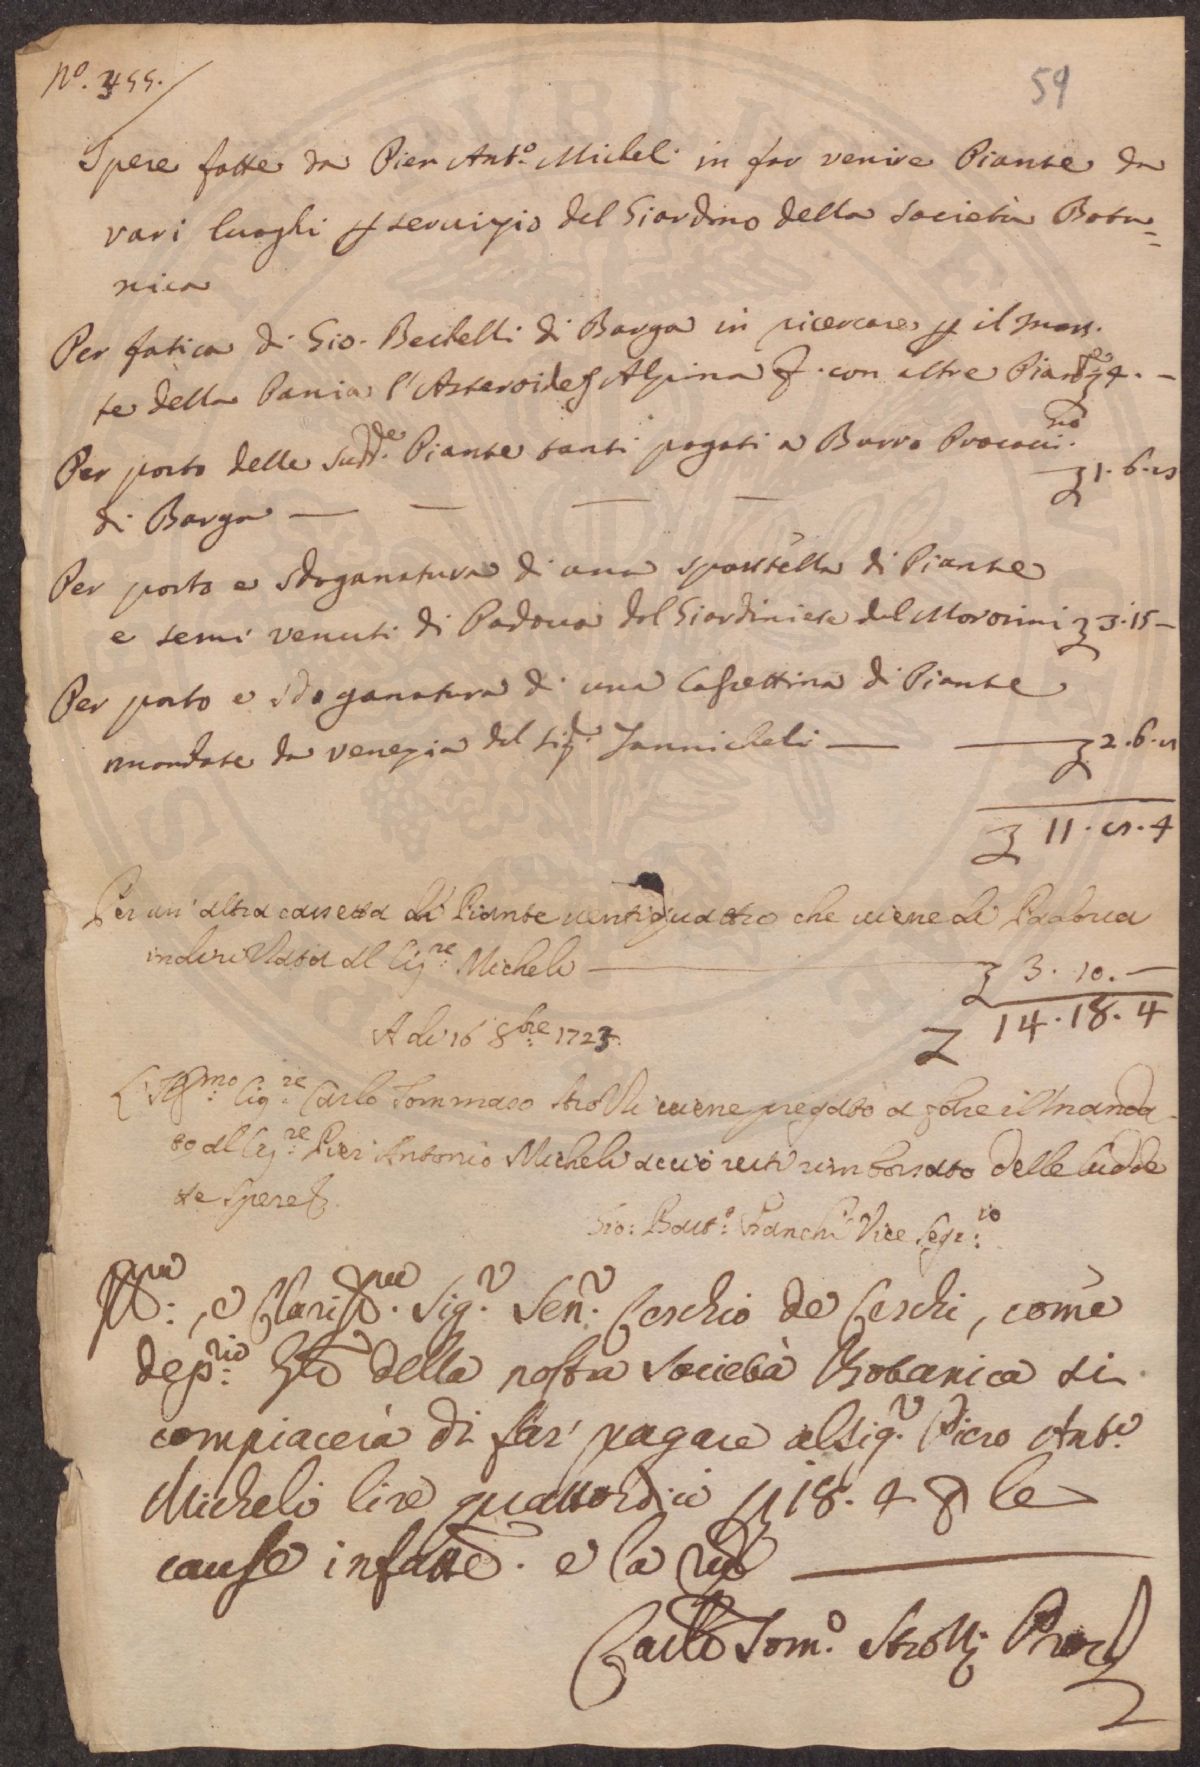 N.º 355.
59
Spese fatte da Pier Ant.º Micheli in far venire Piante da
vari luoghi p servizio del Giardino della Società Bota=
nica
Per fatica di Gio. Bechelli di Barga in ricercare p il Mon.
te della Pania l'Asteroides Alpina &. con altre Piante £ 4. —
Per porto delle Sudd.e Piante tanti pagati a Barro Procacci.no
di Barga — — — — £ 1. 6. 8
Per porto e sdoganatura di una sportella di Piante
e semi venuti di Padova dal Giardiniere del Morosini £ 3. 15 —
Per porto e sdoganatura di una Cassettina di Piante
mandate da venezia dal Sig.r Zannichelli — — £ 2. 6. 8
£ 11. 8. 4
Per un' altra cassetta di Piante ventiquattro che viene di Padova
indirizzata al Sig.re Micheli — £ 3. 10. —
£ 14. 18. 4
A di 16 8bre 1723.
L'Ill.mo Sig.re Carlo Tommaso Strozzi viene pregato a fare il Manda-
to al Sig.re Pier Antonio Micheli accio resti rimborsato delle sudde
te spese &.
Gio: Batt.a Franchi Vice Segr.io
Ill.mo, e Clariss.mo Sig.r Sen.r Cerchio de Cerchi, come
dep.rio della nostra Società Botanica si
compiacerà di far' pagare al Sig.r Piero Ant.o
Micheli lire quattordici p 18. 4 p le
cause infatte. e la
Carlo Tom.o Strozzi